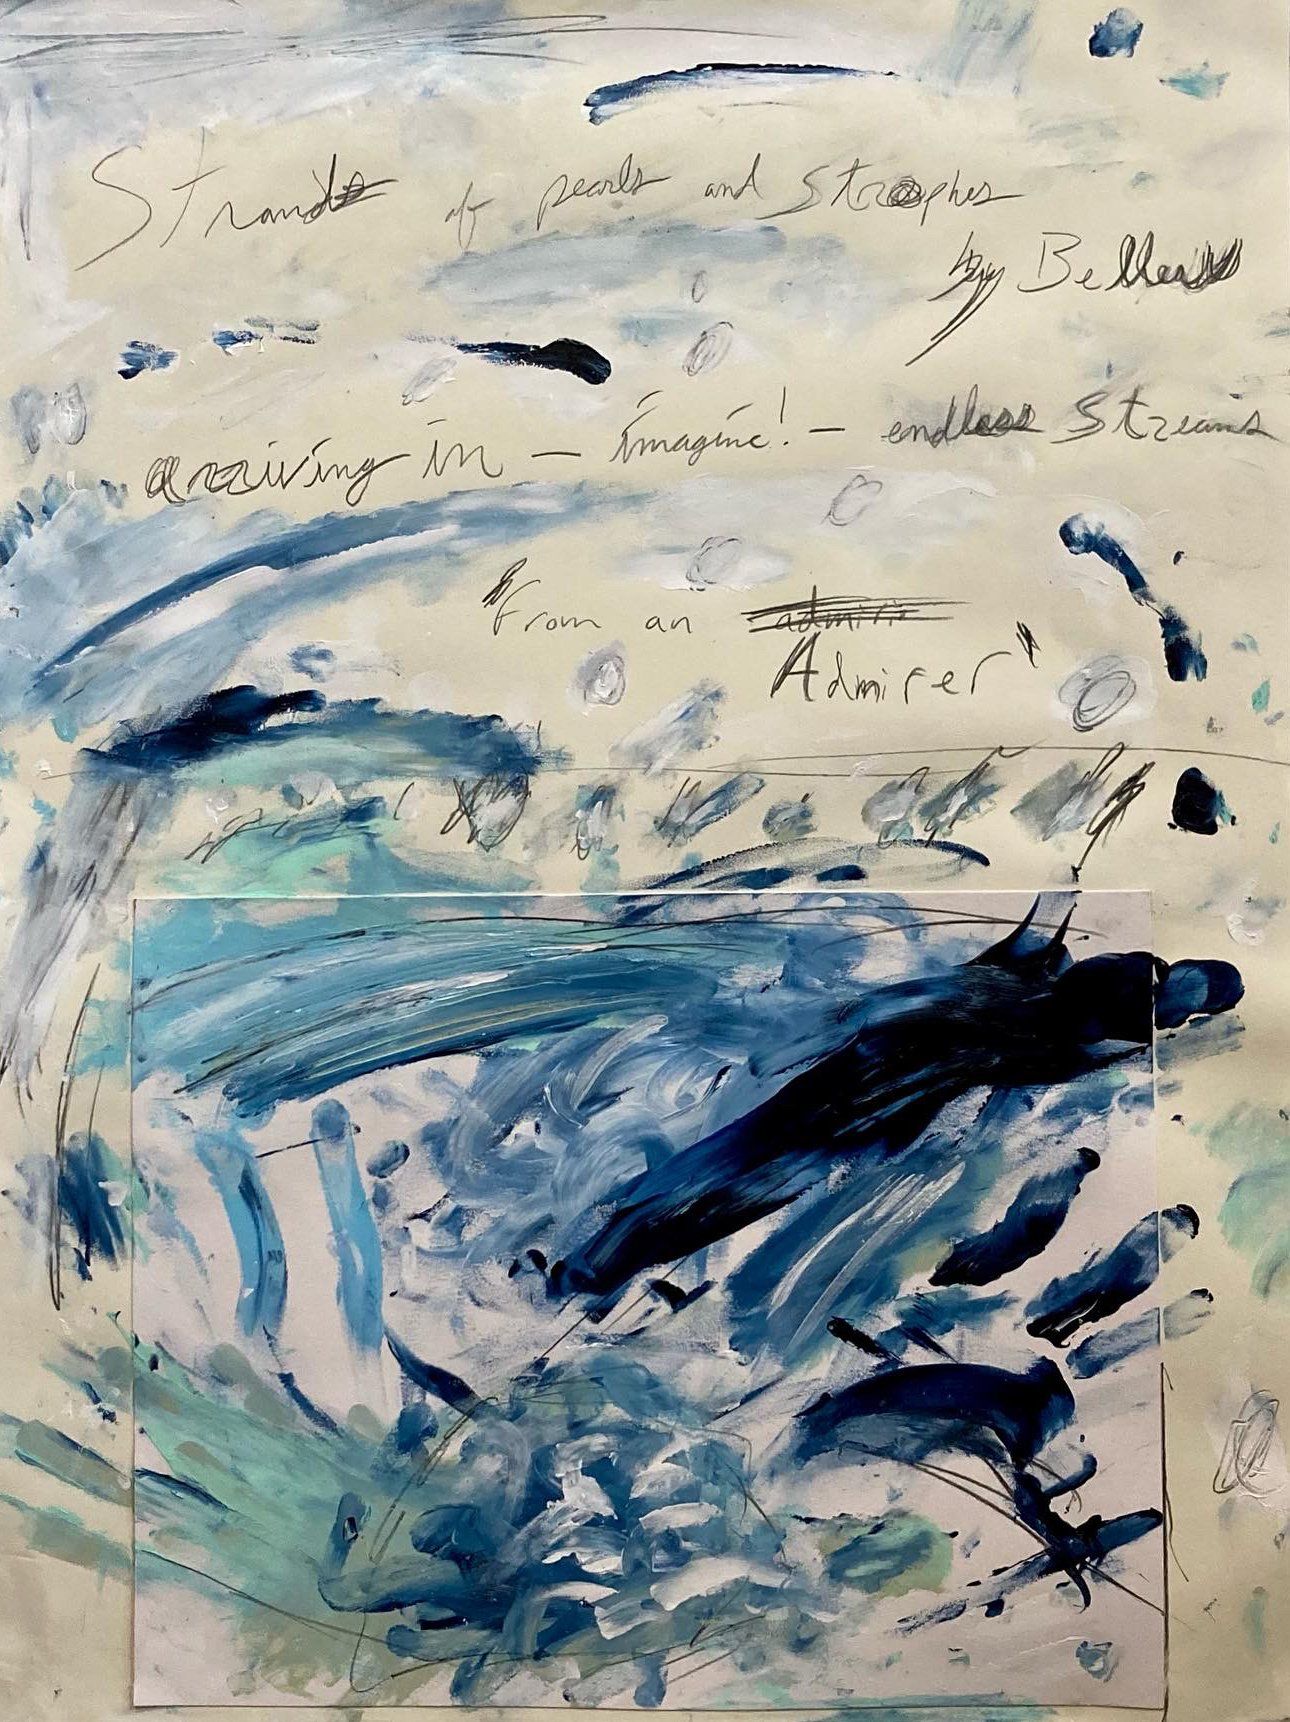 Strands of pearls and Strophes
by Belleau
arriving in — imagine! — endless Streams
"From an admirir
Admirer"